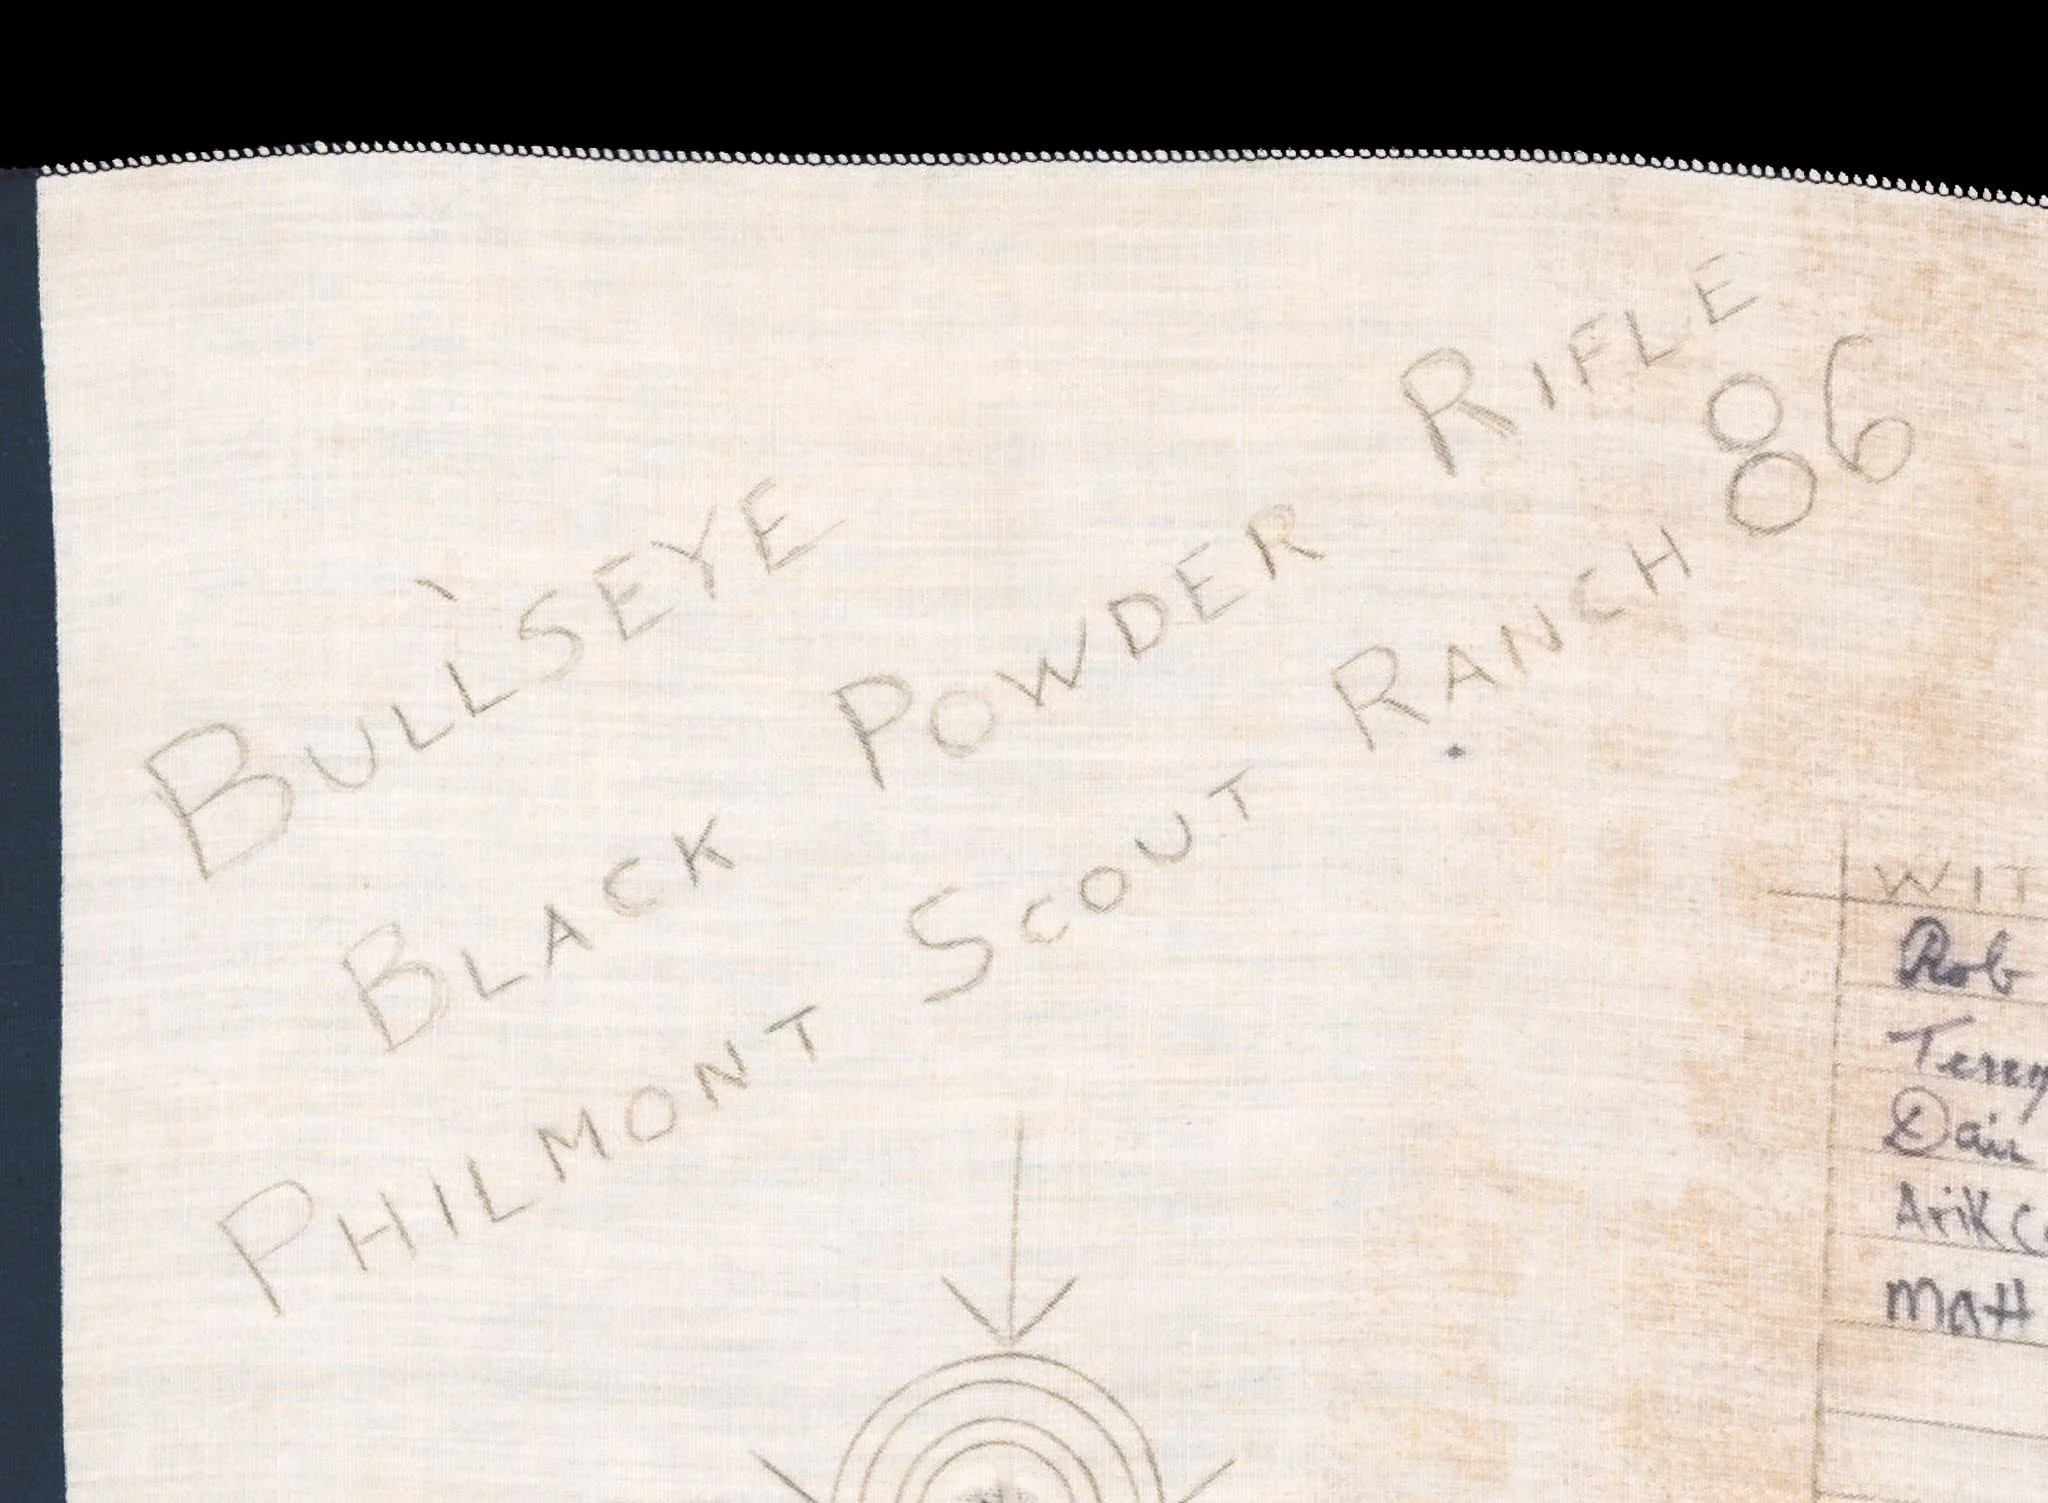 BULL'SEYE
BLACK POWDER RIFLE
PHILMONT SCOUT RANCH 86
WIT
Rob
Terry
Arik
Matt